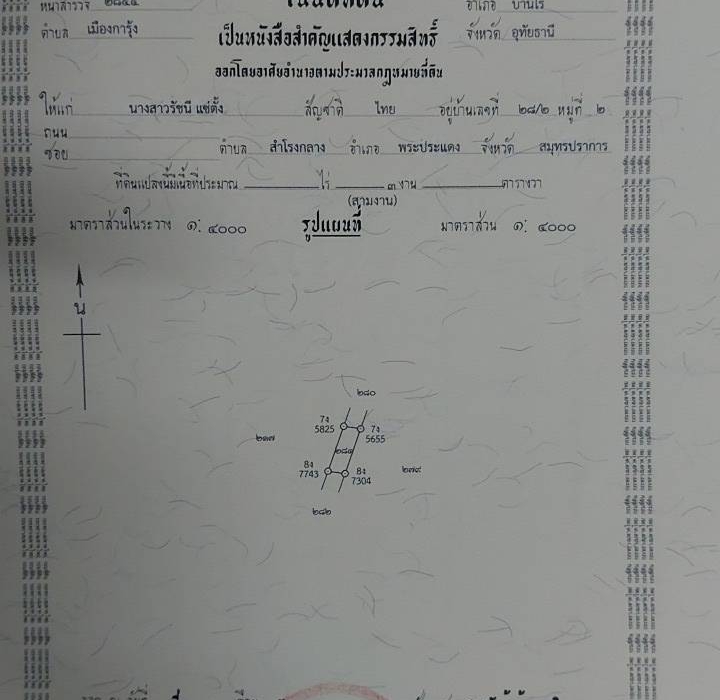 หน้าสำรวจ ๒๘๔๔ อำเภอ บ้านไร่
ตำบล เมืองการุ้ง เป็นหนังสือสำคัญแสดงกรรมสิทธิ์ จังหวัด อุทัยธานี
ออกโดยอาศัยอำนาจตามประมวลกฎหมายที่ดิน
ให้แก่ นางสาวรัชนี แซ่ตั้ง สัญชาติ ไทย อยู่บ้านเลขที่ ๒๘/๒ หมู่ที่ ๒
ถนน
ซอย ตำบล สำโรงกลาง อำเภอ พระประแดง จังหวัด สมุทรปราการ
ที่ดินแปลงนี้มีเนื้อที่ประมาณ ไร่ ๓ งาน ตารางวา
(สามงาน)
มาตราส่วนในระวาง ๑: ๔๐๐๐ รูปแผนที่ มาตราส่วน ๑: ๔๐๐๐
น
๒๘๐
7ง 5825
7ง 5655
๒๑๗
๒๘๑
8ง 7743
8ง 7304
๒๗๙
๒๘๒